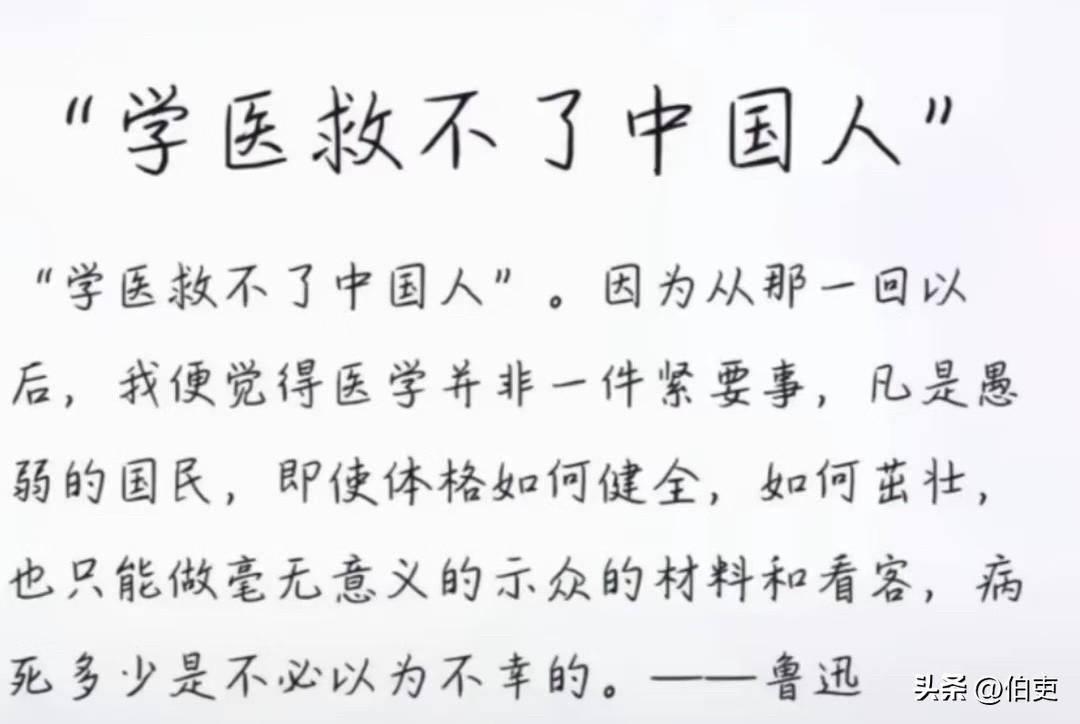 “学医救不了中国人”
“学医救不了中国人”。因为从那一回以
后，我便觉得医学并非一件紧要事，凡是愚
弱的国民，即使体格如何健全，如何茁壮，
也只能做毫无意义的示众的材料和看客，病
死多少是不必以为不幸的。——鲁迅
头条 @伯吏